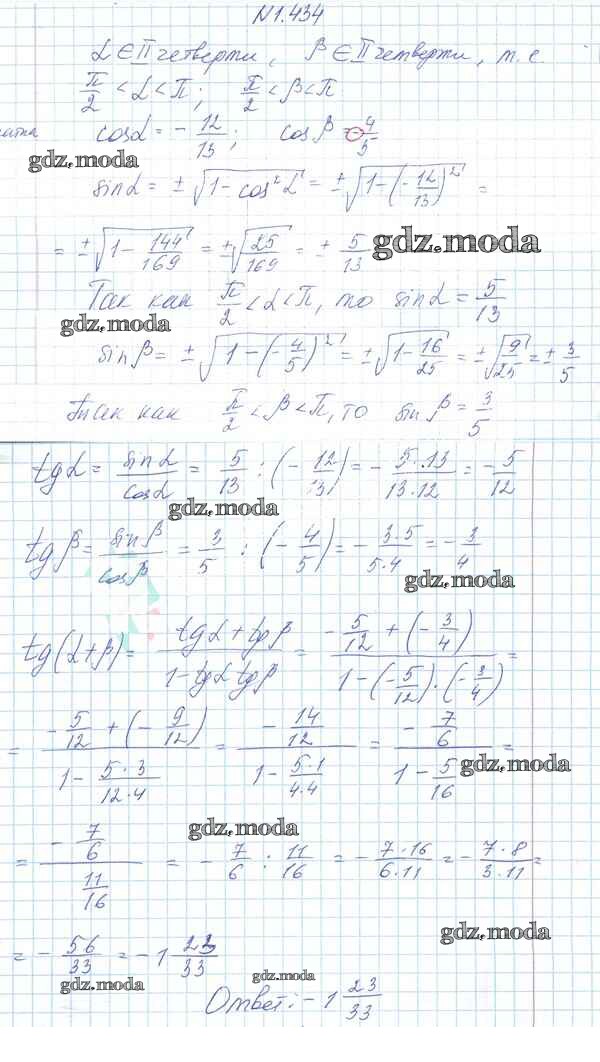 N1.434
α ∈ II четверти, β ∈ II четверти, т.е.
π/2 < α < π; π/2 < β < π
cosα = -12/13; cosβ = -4/5
gdz.moda
sinα = ±√(1 - cos²α) = ±√(1 - (-12/13)²) =
= ±√(1 - 144/169) = ±√(25/169) = ± 5/13
gdz.moda
Так как π/2 < α < π, то sinα = 5/13
gdz.moda
sinβ = ±√(1 - (-4/5)²) = ±√(1 - 16/25) = ±√(9/25) = ± 3/5
Так как π/2 < β < π, то sinβ = 3/5
tgα = sinα/cosα = 5/13 : (-12/13) = - 5·13/13·12 = - 5/12
gdz.moda
tgβ = sinβ/cosβ = 3/5 : (-4/5) = - 3·5/5·4 = - 3/4
gdz.moda
tg(α+β) = (tgα + tgβ)/(1 - tgα tgβ) = (-5/12 + (-3/4))/(1 - (-5/12)·(-3/4)) =
= (-5/12 + (-9/12))/(1 - 5·3/12·4) = (-14/12)/(1 - 5·1/4·4) = (-7/6)/(1 - 5/16) =
gdz.moda
gdz.moda
= (-7/6)/(11/16) = - 7/6 : 11/16 = - 7·16/6·11 = - 7·8/3·11 =
gdz.moda
= - 56/33 = -1 23/33
gdz.moda
gdz.moda
Ответ: -1 23/33